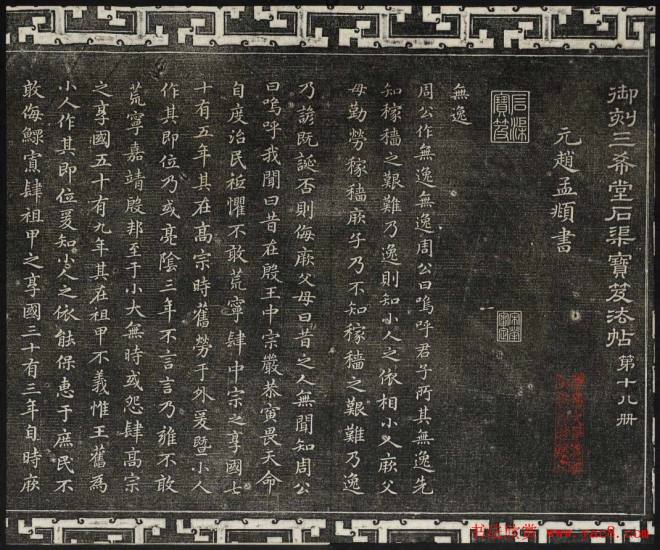 御刻三希堂石渠寶笈法帖第十九册
元趙孟頫書
石渠寶笈
無逸
周公作無逸無逸周公曰嗚呼君子所其無逸先
知稼穡之艱難乃逸則知小人之依相小人厥父
母勤勞稼穡厥子乃不知稼穡之艱難乃逸
乃諺既誕否則侮厥父母曰昔之人無聞知周公
曰嗚呼我聞曰昔在殷王中宗嚴恭寅畏天命
自度治民祗懼不敢荒寧肆中宗之享國七
十有五年其在高宗時舊勞于外爰暨小人
作其即位乃或亮陰三年不言言乃雍不敢
荒寧嘉靖殷邦至于小大無時或怨肆高宗
之享國五十有九年其在祖甲不義惟王舊為
小人作其即位爰知小人之依能保惠于庶民不
敢侮鰥寡肆祖甲之享國三十有三年自時厥
书法欣赏 www.yac8.com